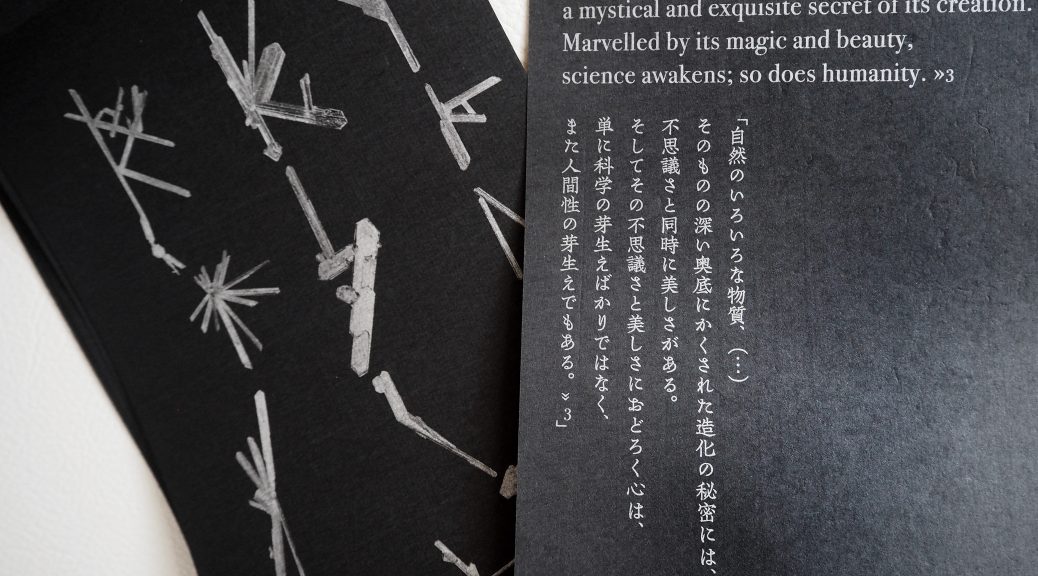 a mystical and exquisite secret of its creation.
Marvelled by its magic and beauty,
science awakens; so does humanity. »3
「自然のいろいろな物質、(…)
そのものの深い奥底にかくされた造化の秘密には、
不思議さと同時に美しさがある。
そしてその不思議さと美しさにおどろく心は、
単に科学の芽生えばかりではなく、
また人間性の芽生えでもある。»3」